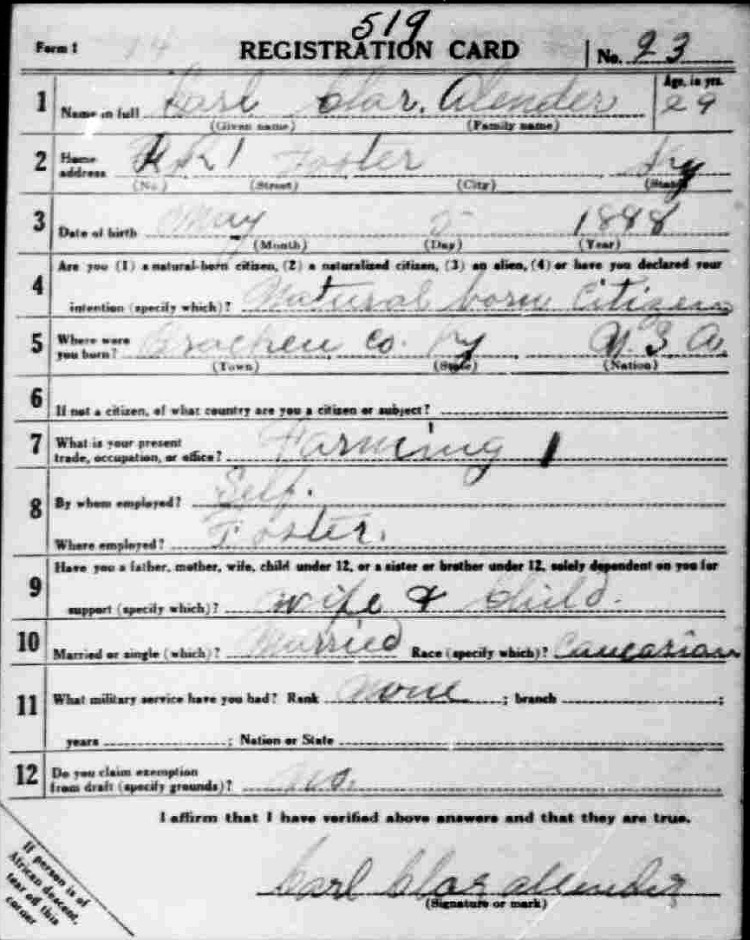 519
Form 1 REGISTRATION CARD No. 23
1 Name in full Karl Clar. Alender Age, in yrs. 29
(Given name) (Family name)
2 Home address RR1 Foster Ky
(No.) (Street) (City) (State)
3 Date of birth May 5 1888
(Month) (Day) (Year)
4 Are you (1) a natural-born citizen, (2) a naturalized citizen, (3) an alien, (4) or have you declared your
intention (specify which)? Natural born Citizen
5 Where were you born? Bracken Co. Ky U.S.A.
(Town) (State) (Nation)
6 If not a citizen, of what country are you a citizen or subject?
7 What is your present trade, occupation, or office? Farming 1
8 By whom employed? Self.
Where employed? Foster.
9 Have you a father, mother, wife, child under 12, or a sister or brother under 12, solely dependent on you for
support (specify which)? wife & Child.
10 Married or single (which)? Married Race (specify which)? Caucasian
11 What military service have you had? Rank None ; branch ;
years ; Nation or State
12 Do you claim exemption from draft (specify grounds)? No.
I affirm that I have verified above answers and that they are true.
Carl Clar allender
(Signature or mark)
If person is of
African descent,
tear off this
corner